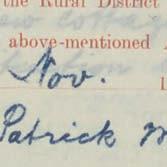 the Rural District
above-mentioned
Nov.
Patrick M